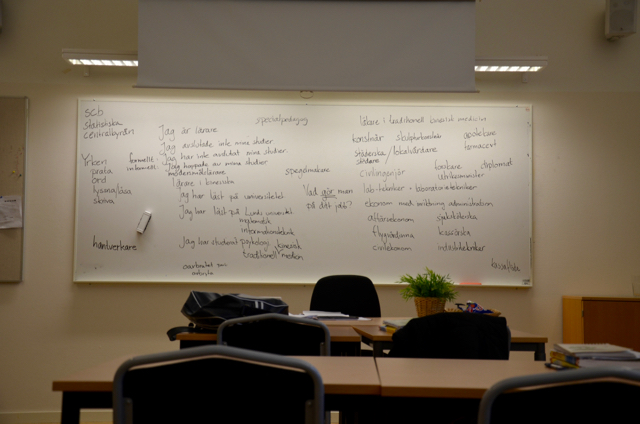 SCB
Statistiska
centralbyrån
Yrken
prata
ord
lyssna/läsa
skriva
hantverkare
formell
informell
specialpedagog
Jag är lärare
Jag avslutade inte mina studier
Jag har inte avslutat mina studier.
Jag hoppade av mina studier
modersmålslärare
lärare i kinesiska
jag har läst på universitetet
Jag har läst på Lunds universitet
matematik
informationsteknik
Jag har studerat psykologi, kinesisk
traditionell medicin
spegelmakare
Vad gör man
på ditt jobb?
läkare i traditionell kinesisk medicin
konstnär skulpturkonstnär apotekare
städerska / lokalvårdare farmaceut
städare
civilingenjör bankare diplomat
utrikesminister
lab-tekniker = laboratorietekniker
ekonom med inriktning administration
affärsekonom sjuksköterska
flygvärdinna kassörska
civilekonom industritekniker